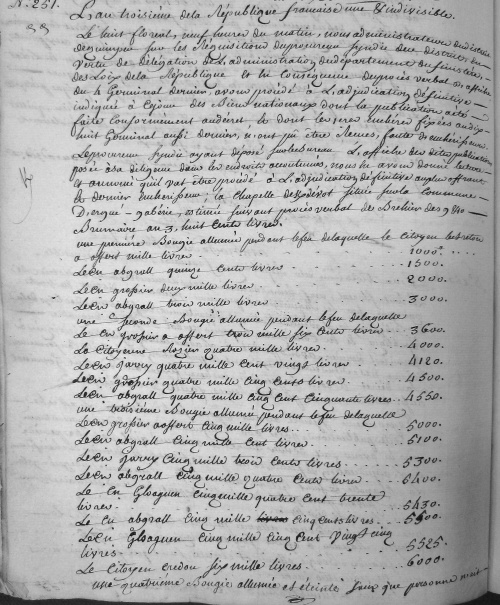 N.° 251.
L'an troisième de la République française une & indivisible.
Le huit floreal, neuf heures du matin, nous administrateurs du district
de quimper sur les Réquisitions du procureur syndic du district en
vertu de délégation de L'administration du département du finistère,
des Loix de la République et en Consequence du procès verbal en affiche
du 4 Germinal dernier, avons procédé à L'adjudication définitive
indiquée à ce jour des Biens nationaux dont la publication a été
faite conformement audéret, & dont les 1ere enchères fixées au dix
huit Germinal aussi dernier, n'ont pû être Recues, faute d'encherisseurs.
Le procureur syndic ayant déposé sur le Bureau L'affiche des dites publications
posée à sa diligence dans les endroits accoutumés, nous en avons donné lecture
et annoncé qu'il vat être procédé à L'adjudication définitive au plus offrant
& dernier encherisseur; la chapelle de Kdévot située sur la Commune
D'ergue-gabéric, estimée suivant procès verbal de Brehier des 9 & 10
Brumaire an 3, huit Cents livres.
une première Bougie allumée pendant le feu de laquelle le Citoyen Le Breton
a offert mille livres 1000.
Le Cn abgrall quinze Cents livres 1500.
Le Cn grossier deux mille livres 2000
Le Cn abgrall trois mille livres 3000.
une seconde Bougie allumée pendant le feu de laquelle
Le Cn grossier a offert trois mille six Cents livres 3600.
La Citoyenne Rosier quatre mille livres 4000
Le Cn jarry quatre mille Cent vingt livres 4120.
Le Cn grossier quatre mille Cinq Cents livres 4500
Le Cn abgrall quatre mille Cinq Cent Cinquante livres 4550.
une troisième Bougie allumée pendant le feu de laquelle
Le Cn grossier a offert Cinq mille livres 5000
Le Cn abgrall Cinq mille Cent livres 5100
Le Cn jarry Cinq mille trois Cents livres 5300
Le Cn abgrall Cinq mille quatre Cents livres 5400.
Le Cn Gloaguen Cinq mille quatre Cent trente
livres 5430
Le Cn abgrall Cinq mille livres Cinq Cents livres 5500
Le Cn Gloaguen Cinq mille Cinq Cent Vingt Cinq
livres 5525
Le Citoyen Credou six mille livres 6000
une quatrième Bougie allumée et éteinte sans que personne n'eut